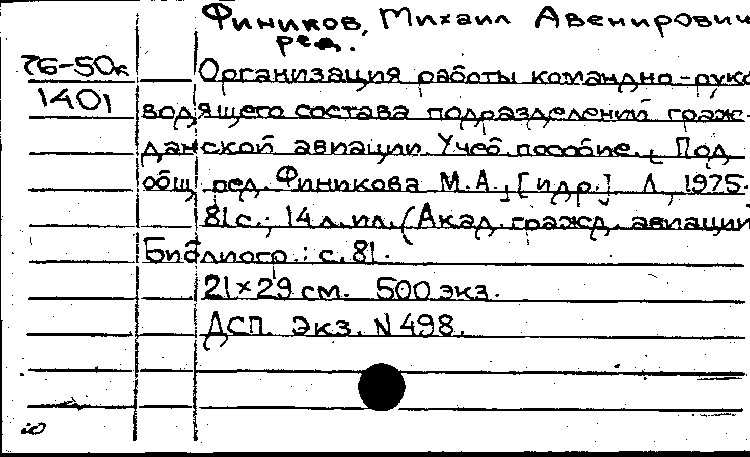 Фиников, Михаил Авенирович
ред.
76-50к
1401
Организация работы командно-руко
водящего состава подразделений граж-
данской авиации. Учеб. пособие. Под
общ. ред. Финикова М.А., [и др.] Л., 1975.
81 с.; 14 л. ил. (Акад. гражд. авиации
Библиогр.: с. 81.
21×29 см. 500 экз.
ДСП. Экз. N 498.